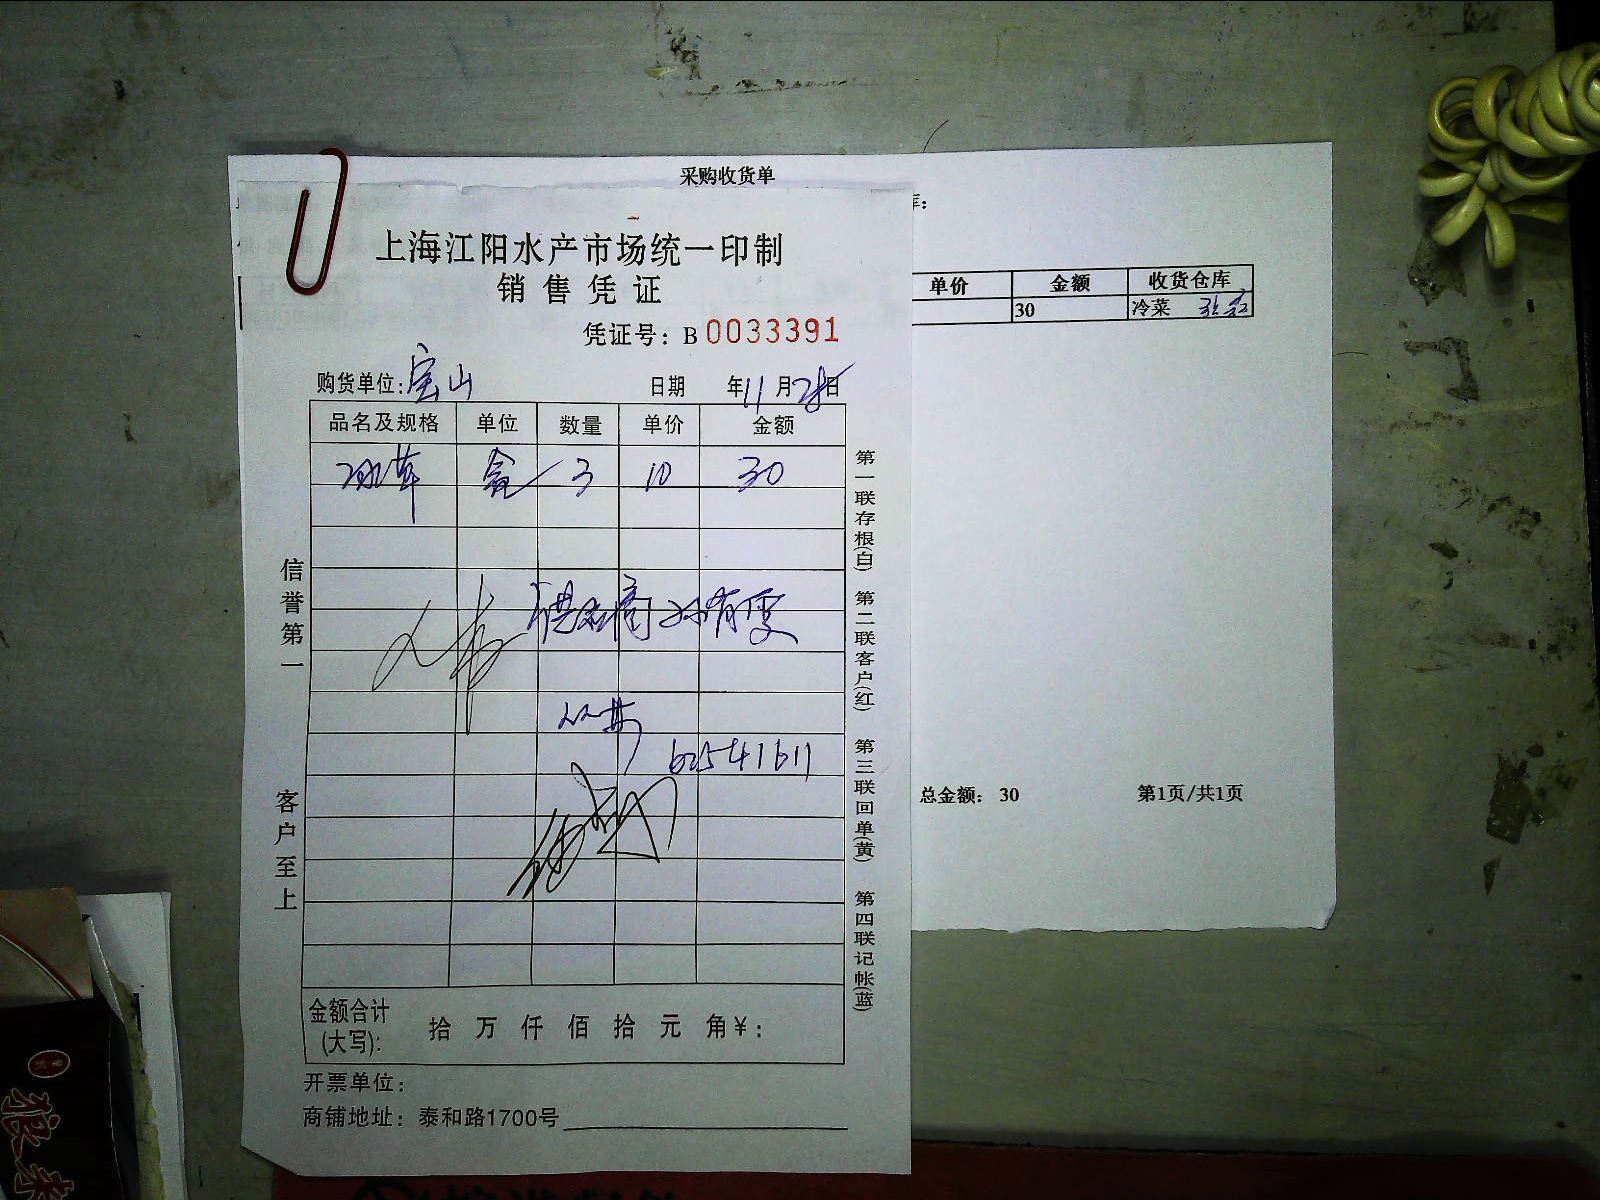 采购收货单
库：
单价 金额 收货仓库
30 冷菜
总金额： 30 第1页/共1页
上海江阳水产市场统一印制
销售凭证
凭证号：B 0033391
购货单位：宝山 日期 年11月28日
品名及规格 单位 数量 单价 金额
冰草 盒 3 10 30
62541611
金额合计
(大写)： 拾 万 仟 佰 拾 元 角¥：
开票单位：
商铺地址：泰和路1700号
信誉第一
客户至上
第一联存根(白) 第二联客户(红) 第三联回单(黄) 第四联记帐(蓝)